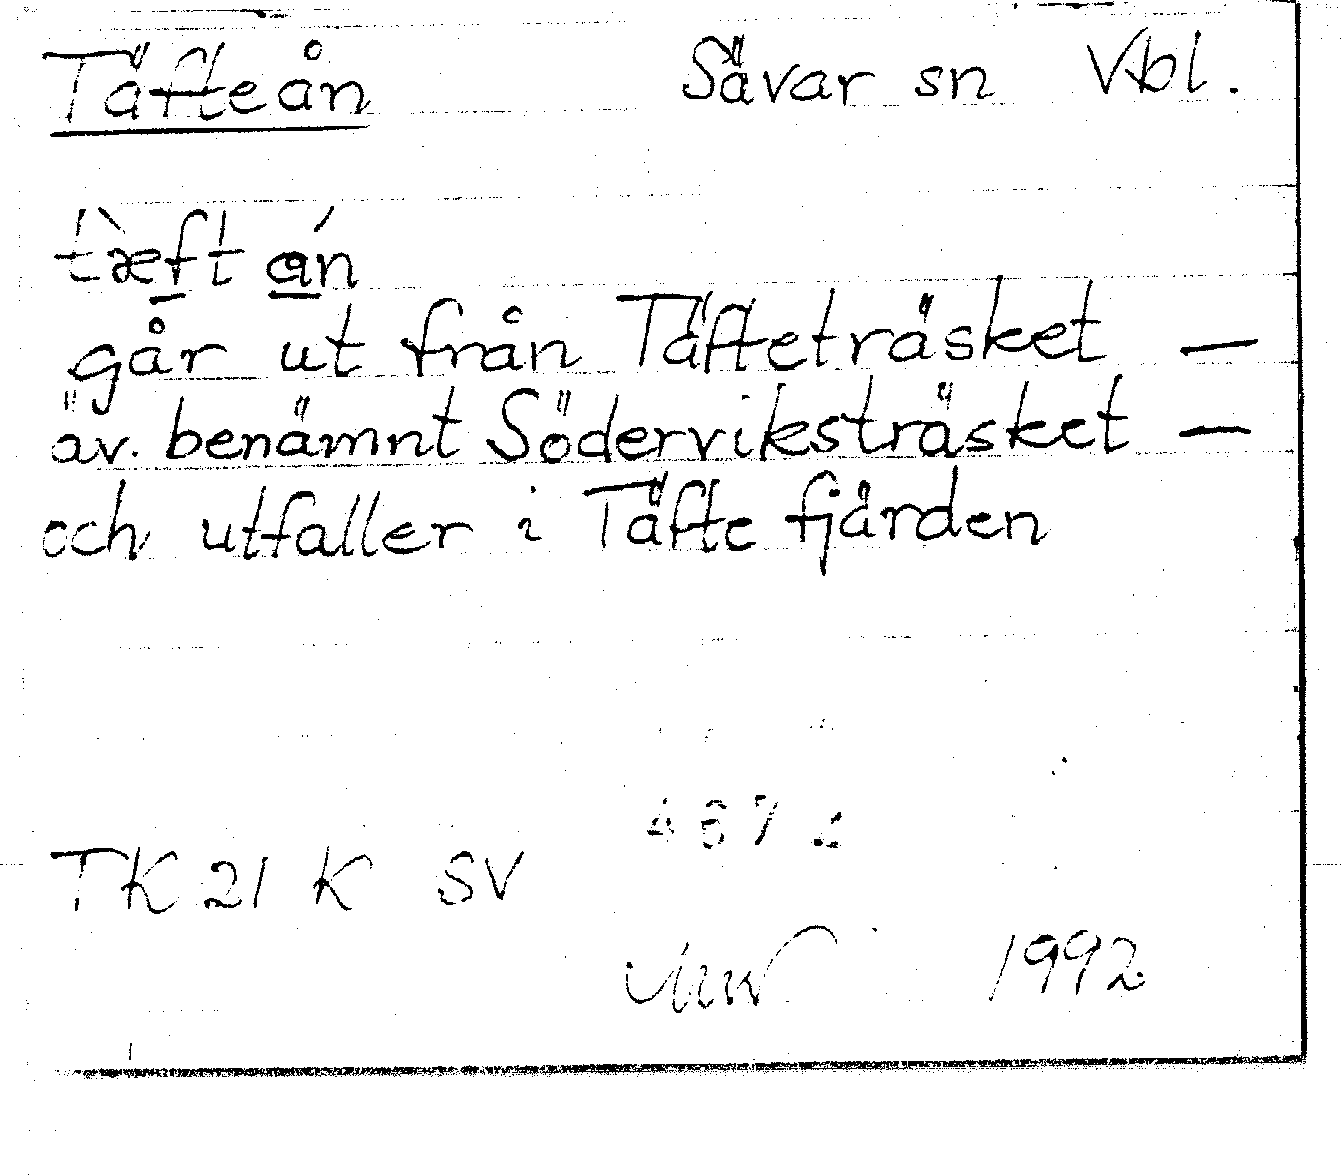 Täfteån Sävar sn Vbl.
tæ̀ft án
går ut från Täfteträsket —
äv. benämnt Söderviksträsket —
och utfaller i Täfte fjärden
TK 21 K SV
1992